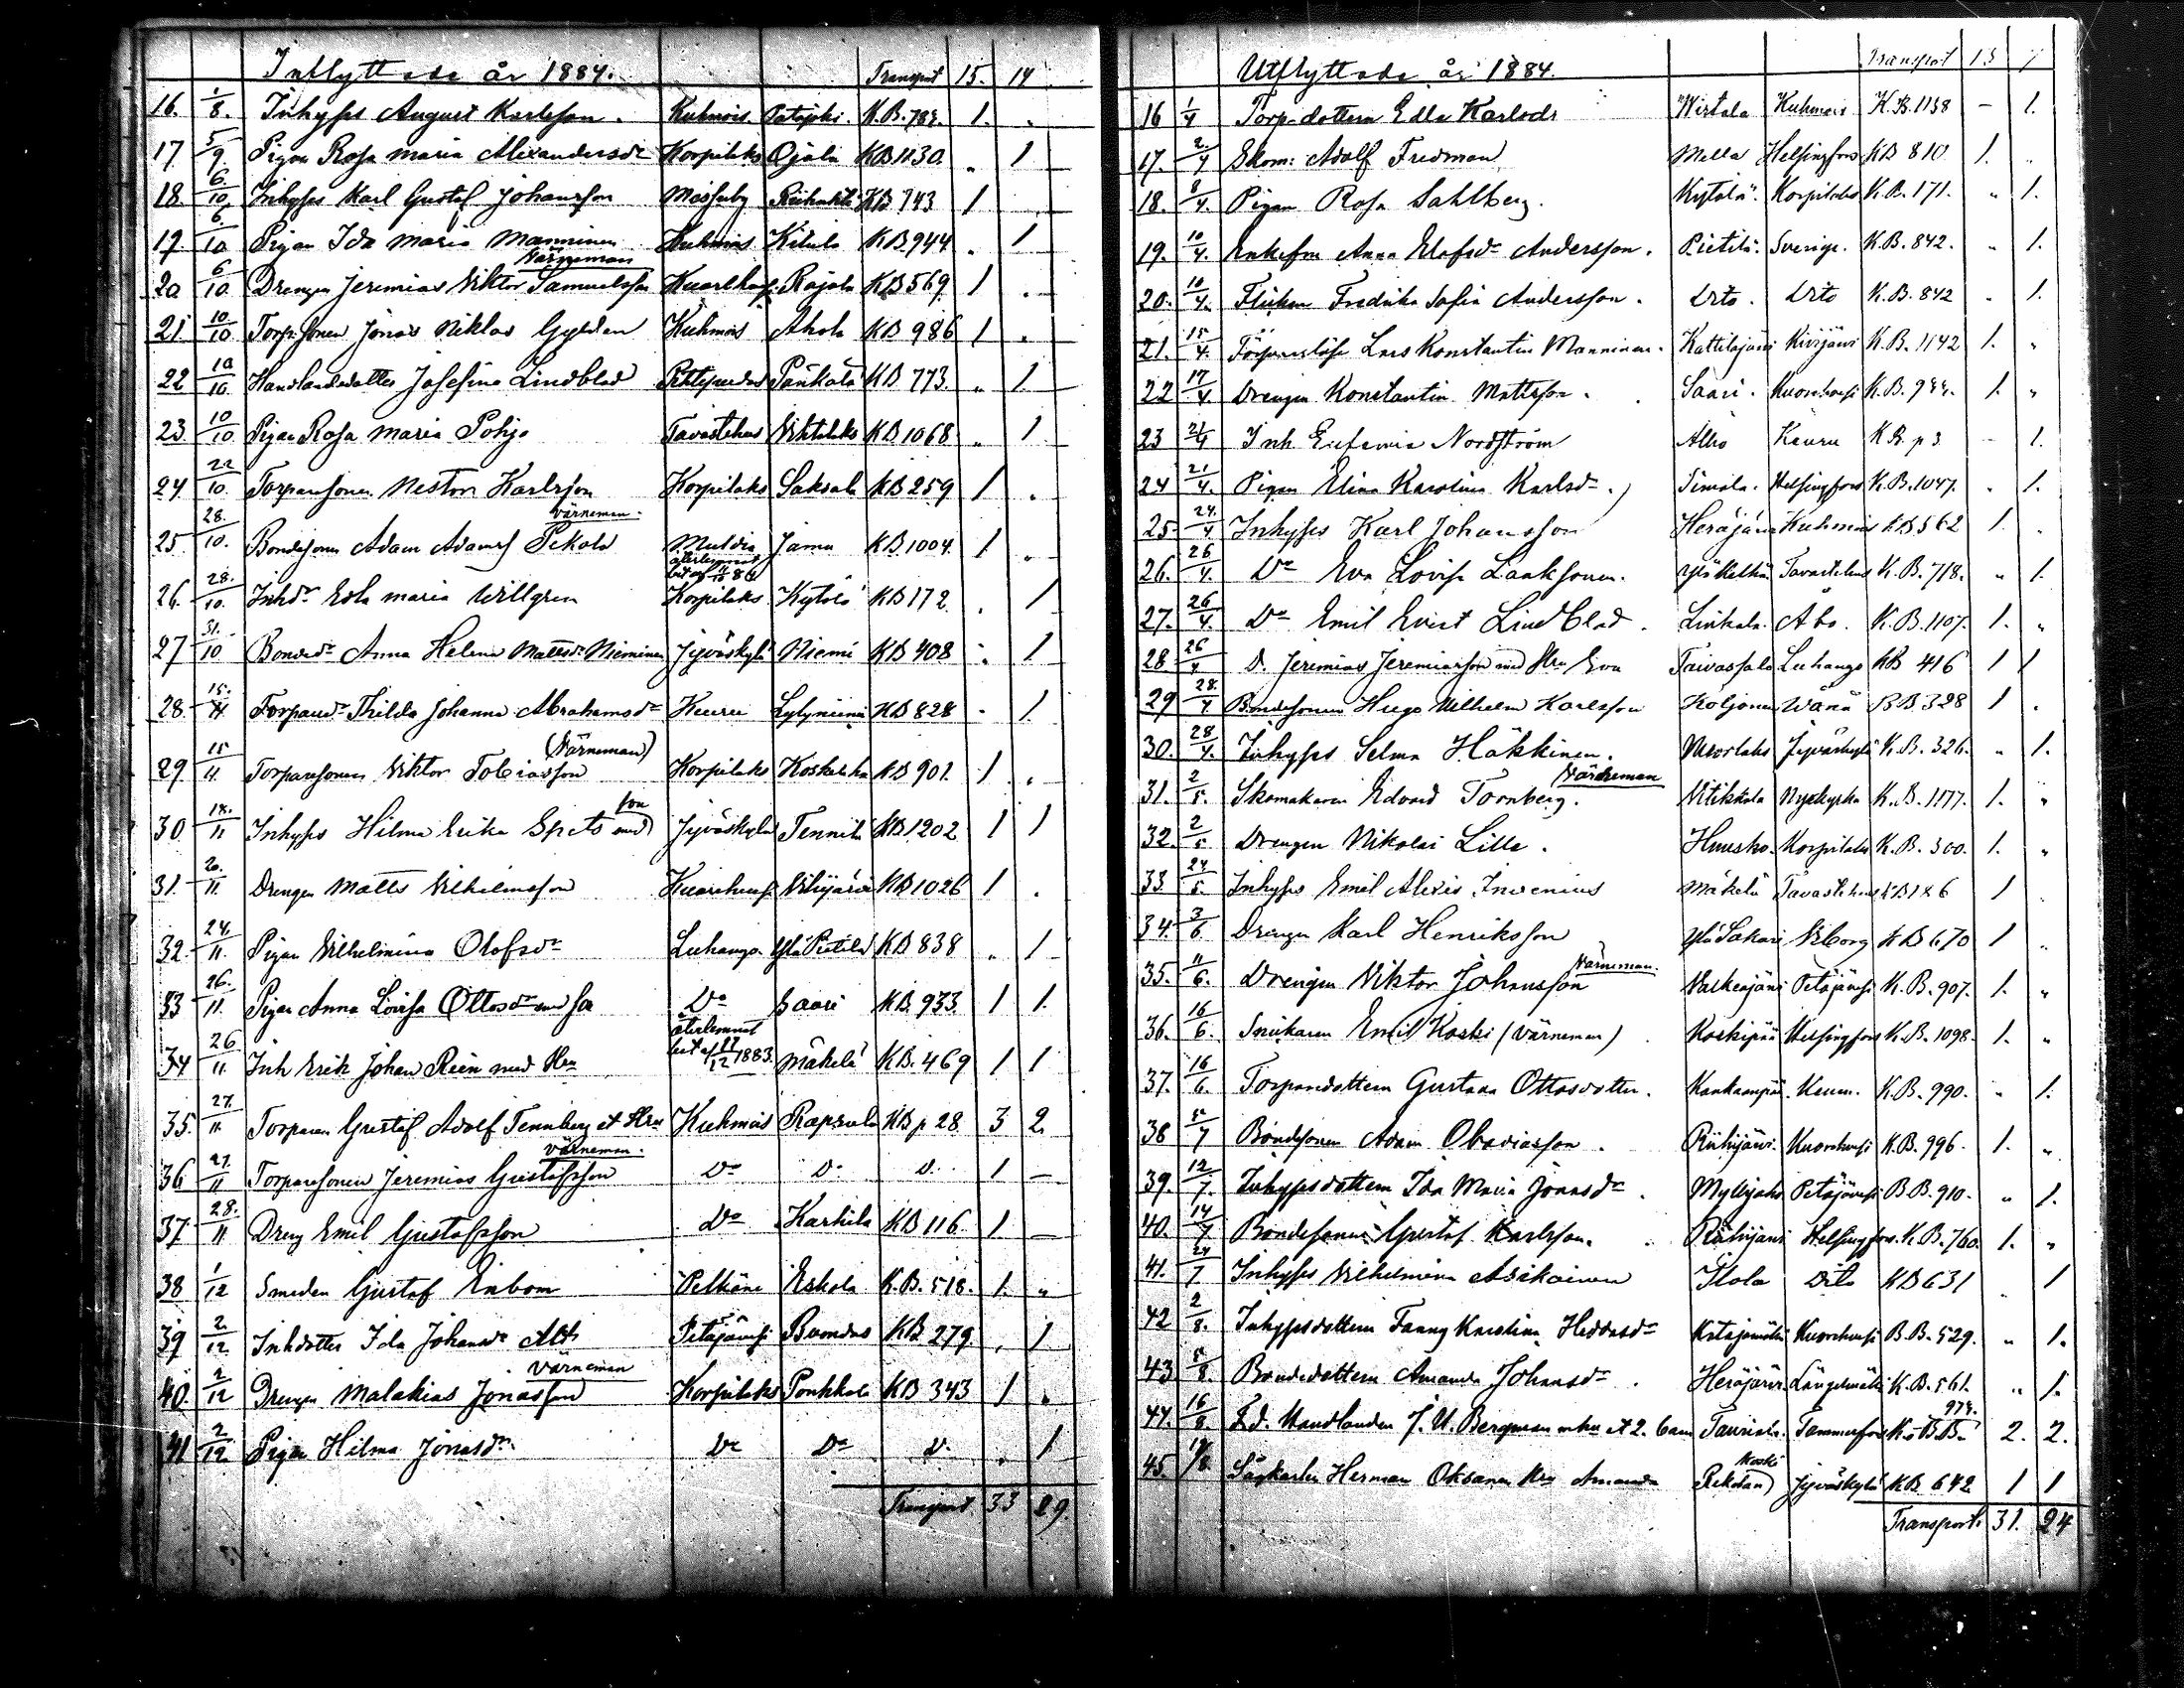 Inflyttade år 1884. Transport 15. 14
16. 1/8. Inhyses August Karlsson. Kuhmois. Patajoki. K.B. 789. 1. "
17 5/9. Pigan Rosa Maria Alexandersdr Korpilaks Ojala KB 1130. " 1
18. 6/10. Inhyses Karl Gustaf Johansson Mässuby Riihilahti KB 743 1
19. 6/10 Pigan Ida Maria Manninen Kuhmois Kitula KB 944 " 1
Värneman
20 6/10 Drengen Jeremias Viktor Samuelsson Kuorehves Rajala KB 569. 1 "
21. 10/10 Torp.sonen Jonas Niklas Gylden Kuhmois Ahola KB 986 1 "
22 10/10 Handlandedotter Josefina Lindblad Pihlajavedes Pänkälä KB 773. " 1.
23. 10/10 Pigan Rosa Maria Pohjo Tavastehus Vihtalaks KB 1068. " 1
24 22/10. Torparesonen Nestor Karlsson Korpilaks Saksala KB 259 1 "
värneman.
25 28./10. Bondesonen Adam Adamss Pekola Multia Jamu KB 1004. 1 "
återlemnat bet. af 4/10 84
26. 28./10. Inhdr Edla Maria Willgren Korpilaks Kytölä KB 172 " 1
27 31./10 Bondedr Anna Helena Mattsdr Nieminen Jyväskylä Niemi KB 408 " 1
28. 15./11 Torparedr Thilda Johanna Abrahamsdr Keuru Lylyniemi KB 828 - 1.
(Värneman)
29 15/11. Torparesonen Viktor Tobiasson Korpilaks Koskelka KB 901. 1 "
son
30 18./11 Inhyses Hilma Erika Spets med Jyväskylä Tennilä KB 1202 1 1
31. 20./11. Drengen Matts Vilhelmsson Kuorehves Vihijärvi KB 1026 1 "
32. 24./11. Pigan Vilhelmina Olofsdr Luhango Ylä Pietilä KB 838 " 1
33 26./11. Pigan Anna Lovisa Ottosdr med so Do Saari KB. 933. 1 1.
återlemnat
34 26/11. Inh Erik Johan Rein med Hu bet af 17/12 1883. Mäkelä KB. 469 1 1
35. 27./11. Torparen Gustaf Adolf Tennberg et Hru Kuhmois Rapsula KB p 28. 3 2.
värneman.
36 27./11 Torparesonen Jeremias Gustafsson Do D. D. 1 -
37. 28./11 Dreng Emil Gustafsson Do Karhila KB 116. 1 -
38 1/12 Smeden Gustaf Enbom Pelkäne Eskola K.B. 518. 1. "
39 2./12. Inhdotter Ida Johansdr Ahl Petäjävesi Bondas KB. 279. " 1
värneman
40. 2/12 Drengen Malakias Jonasson Korpilaks Ponkkala KB 343 1 "
41 2/12. Pigan Hilma Jonasdr Do Do D. " 1
Transport. 33 29.
Utflyttade år 1884. Transport 15 7
16 1/4 Torp.dottern Edla Karlsdr Wirtala Kuhmois K.B. 1158 - 1.
17. 2./4 Skom: Adolf Fredman Mella Helsingfors KB 810 1. "
18. 8/4. Pigan Rosa Sahlberg. Kytölä. Korpilaks K.B. 171. " 1.
19. 10/4. Enkefru Anna Elofsdr Andersson. Pietilä. Sverige. K.B. 842. " 1.
20. 10/4. Flickan Fredrika Sofia Andersson. Dito. Dito K.B. 842 " 1.
21. 15/4. Lars Konstantin Manninen. Kattilajärvi Kivijärvi K.B. 1142 1. "
22 17/4. Drengen Konstantin Mattsson. Saari. Kuorehvesi K.B. 944. 1. "
23 21/4 Inh. Eufemia Nordström Alho Keuru K.B. p 3. - 1.
24 21/4. Pigan Elina Karolina Karlsdr. Simola. Helsingfors K.B. 1047. " 1.
25 24./4 Inhyses Karl Johansson Heräjärvi Kuhmois KB 562 1. "
26. 26/4. Do Eva Lovisa Laaksonen. Tavastehus K.B. 718. " 1.
27. 26/4. Do Emil Evert Lindblad. Linkala. Åbo. K.B. 1107. 1. "
28 26/4 D. Jeremias Jeremiasson med Hru Eva Taivassalo Luhango KB 416 1 1
29 28./4 Bondesonen Hugo Vilhelm Karlsson Koljonen Wånå KB 328 1 "
30. 28/4. Inhyses Selma Häkkinen. Vuorlaks Jyväskylä K.B. 326. " 1.
Värneman
31. 2/5. Skomakaren Edvard Tornberg. Vitikkala Nykyrka K.B. 1177. 1. "
32. 2/5 Drengen Nikolai Lilla. Huusko. Korpilaks K.B. 300. 1. "
33 24/5 Inhyses Emil Alexis Invenius Mäkelä Tavastehus KB 186 1
34. 3/6. Drengen Karl Henriksson Ylä Sakari Viborg KB 670 1 "
Värneman.
35. 11/6. Drengen Viktor Johansson Valkeajärvi Petäjävesi K.B. 907. 1. "
36. 16/6. Snickaren Emil Koski (Värneman) Koskipää Helsingfors K.B. 1098. 1. "
37. 16/6. Torparedottern Gustava Ottosdotter. Kankaanpää Keuru. K.B. 990. " 1.
38 5/7 Bondesonen Adam Obadiasson. Riihijärvi. Kuorehvesi K.B. 996. 1. "
39. 12/7. Inhysesdottern Ida Maria Jonasdr. Myllyjoki Petäjävesi B.B. 910. " 1.
40. 14/7 Bondesonen Gustaf Karlsson. Riihijärvi Helsingfors. K.B. 760. 1. "
41. 24/7 Inhyses Vilhelmina Asikainen Ilola Dito KB 631 " 1
42 2/8. Inhysesdottern Fanny Kristina Heddasdr Katajamäki Kuorehvesi B.B. 529. " 1.
43 5/8. Bondedottern Amanda Johansdr. Heräjärvi. Längelmäki K.B. 561. " 1.
974.
44. 16/8 F.d. Handlanden J.U. Bergman m hu et 2. barn Tauriala. Tammerfors K. B.B. 2. 2.
Koski
45. 19/8. Sågkarlen Herman Oksanen Hru Amanda Pekolan Jyväskylä KB 642 1 1
Transport: 31. 24